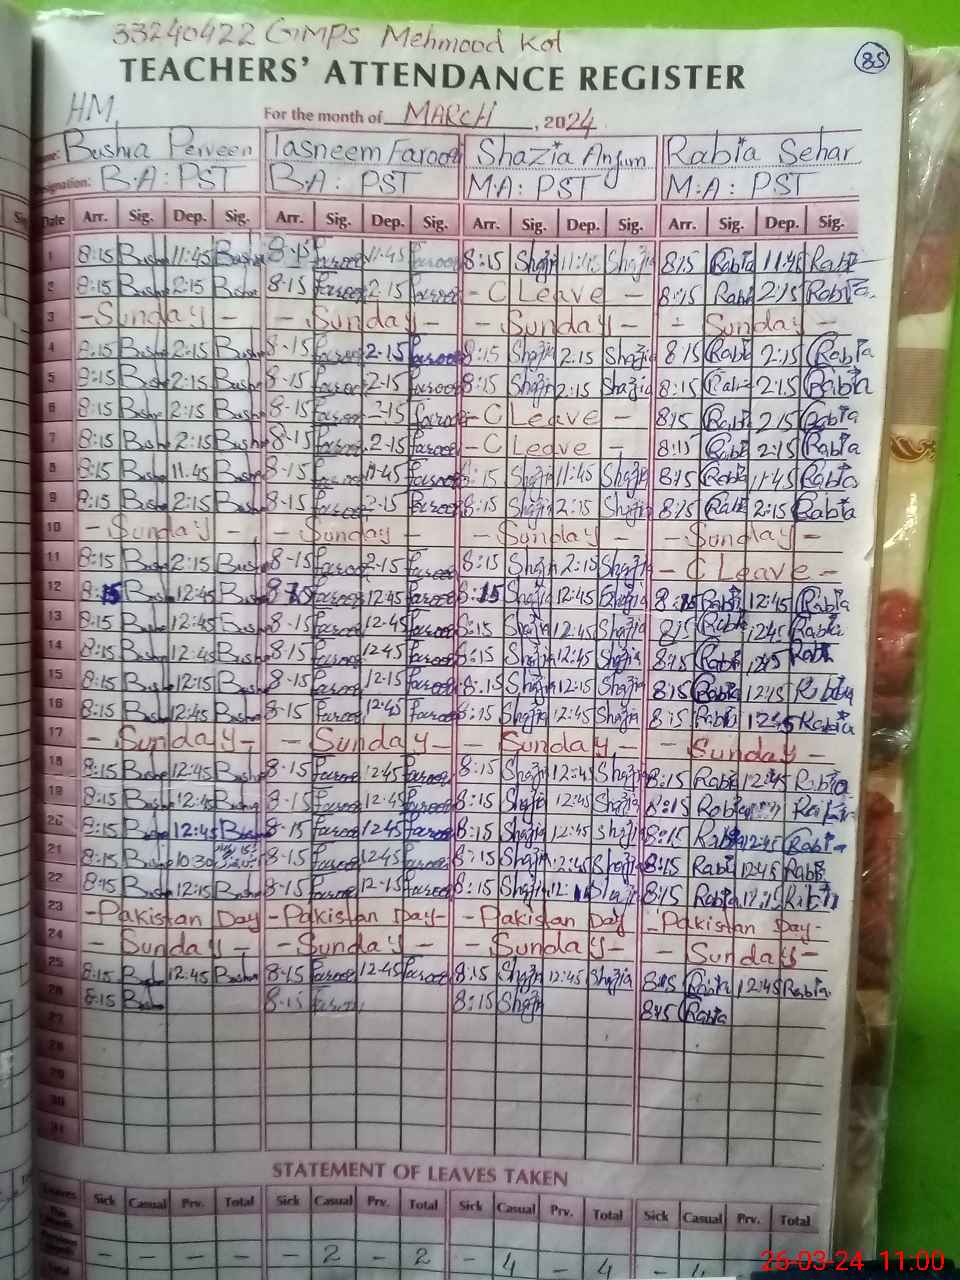 33240422 GGMPS Mehmood Kot
85
TEACHERS' ATTENDANCE REGISTER
HM,
For the month of MARCH, 2024
Bushra Perveen Tasneem Farooq Shazia Anjum Rabia Sehar
Designation: B.A: PST B.A: PST M.A: PST M.A: PST
Date Arr. Sig. Dep. Sig. Arr. Sig. Dep. Sig. Arr. Sig. Dep. Sig. Arr. Sig. Dep. Sig.
1 8:15 Bushra 11:45 Bushra 8-15 Farooq 11-45 Farooq 8:15 Shazia 11:45 Shazia 8:15 Rabia 11:45 Rabia
2 8:15 Bushra 2:15 Bushra 8-15 Farooq 2-15 Farooq - C Leave - 8:15 Rabia 2:15 Rabia
3 - Sunday - - Sunday - - Sunday - - Sunday -
4 8:15 Bushra 2:15 Bushra 8-15 Farooq 2-15 Farooq 8:15 Shazia 2:15 Shazia 8:15 Rabia 2:15 Rabia
5 8:15 Bushra 2:15 Bushra 8-15 Farooq 2-15 Farooq 8:15 Shazia 2:15 Shazia 8:15 Rabia 2:15 Rabia
6 8:15 Bushra 2:15 Bushra 8-15 Farooq 2-15 Farooq - C Leave - 8:15 Rabia 2:15 Rabia
7 8:15 Bushra 2:15 Bushra 8-15 Farooq 2-15 Farooq - C Leave - 8:15 Rabia 2:15 Rabia
8 8:15 Bushra 11:45 Bushra 8-15 Farooq 11-45 Farooq 8:15 Shazia 11:45 Shazia 8:15 Rabia 11:45 Rabia
9 8:15 Bushra 2:15 Bushra 8-15 Farooq 2-15 Farooq 8:15 Shazia 2:15 Shazia 8:15 Rabia 2:15 Rabia
10 - Sunday - - Sunday - - Sunday - - Sunday -
11 8:15 Bushra 2:15 Bushra 8-15 Farooq 2-15 Farooq 8:15 Shazia 2:15 Shazia - C Leave -
12 8:15 Bushra 12:45 Bushra 8-15 Farooq 12:45 Farooq 8:15 Shazia 12:45 Shazia 8:15 Rabia 12:45 Rabia
13 8:15 Bushra 12:45 Bushra 8-15 Farooq 12-45 Farooq 8:15 Shazia 12:45 Shazia 8:15 Rabia 12:45 Rabia
14 8:15 Bushra 12:45 Bushra 8-15 Farooq 12-45 Farooq 8:15 Shazia 12:45 Shazia 8:15 Rabia 12:45 Rabia
15 8:15 Bushra 12:15 Bushra 8-15 Farooq 12-15 Farooq 8:15 Shazia 12:15 Shazia 8:15 Rabia 12:15 Rabia
16 8:15 Bushra 12:45 Bushra 8-15 Farooq 12:45 Farooq 8:15 Shazia 12:45 Shazia 8:15 Rabia 12:45 Rabia
17 - Sunday - - Sunday - - Sunday - - Sunday -
18 8:15 Bushra 12:45 Bushra 8-15 Farooq 12-45 Farooq 8:15 Shazia 12:45 Shazia 8:15 Rabia 12:45 Rabia
19 8:15 Bushra 12:45 Bushra 8-15 Farooq 12-45 Farooq 8:15 Shazia 12:45 Shazia 8:15 Rabia Rabia
20 8:15 Bushra 12:45 Bushra 8-15 Farooq 12-45 Farooq 8:15 Shazia 12:45 Shazia 8:15 Rabia 12:45 Rabia
21 8:15 Bushra 10:30 8-15 Farooq 12-45 Farooq 8:15 Shazia 12:45 Shazia 8:15 Rabia 12:45 Rabia
22 8:15 Bushra 12:15 Bushra 8-15 Farooq 12-15 Farooq 8:15 Shazia Shazia 8:15 Rabia 12:15 Rabia
23 - Pakistan Day - Pakistan Day - - Pakistan Day - Pakistan Day -
24 - Sunday - - Sunday - - Sunday - - Sunday -
25 8:15 Bushra 12:45 Bushra 8-15 Farooq 12-45 Farooq 8:15 Shazia 12:45 Shazia 8:15 Rabia 12:45 Rabia
26 8:15 Bushra 8-15 Farooq 8:15 Shazia 8:15 Rabia
27
28
29
30
31
STATEMENT OF LEAVES TAKEN
Leaves Sick Casual Prv. Total Sick Casual Prv. Total Sick Casual Prv. Total Sick Casual Prv. Total
- - - - - 2 - 2 - 4 - 4 -
26-03-24 11:00